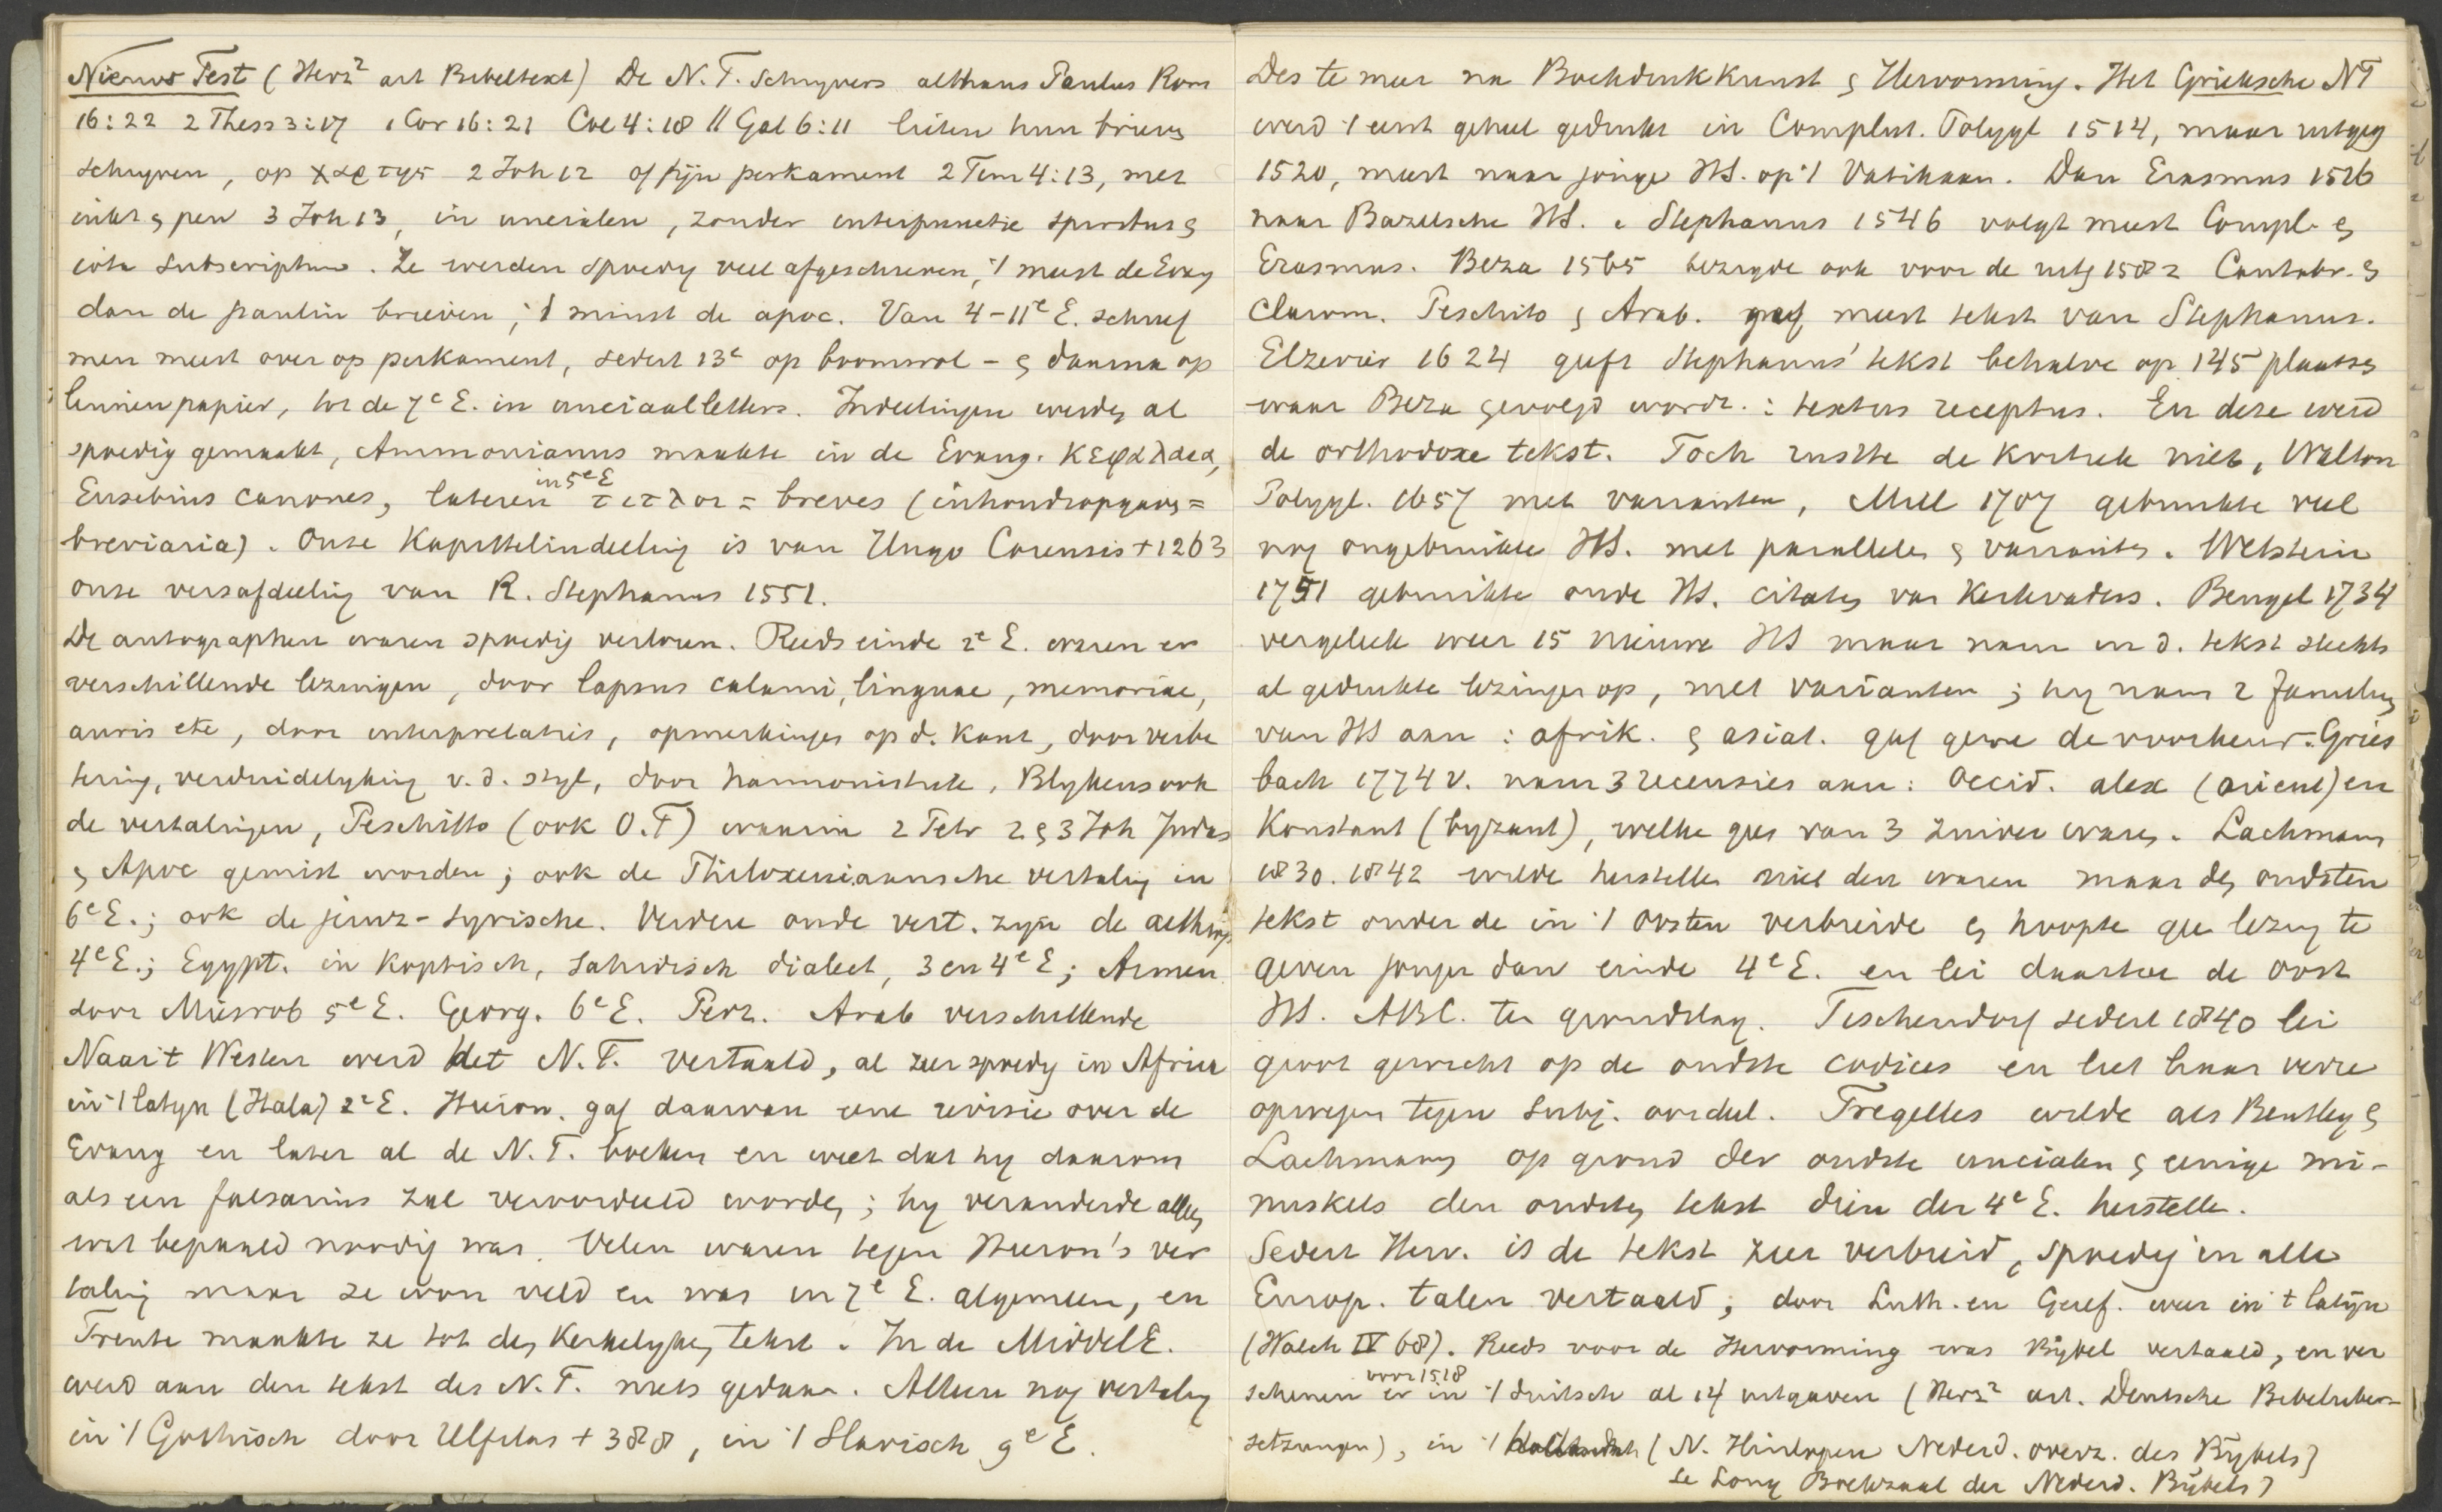 Nieuwe Test (Herz² art Bibeltext) De N. T. Schrijvers althans Paulus Rom
16:22 2 Thess 3:17 1 Cor 16:21 Col 4:18 || Gal 6:11 lieten hun brieven
schryven, op χαρτης 2 Joh 12 of fijn perkament 2 Tim 4:13, met
inkt & pen 3 Joh 13, in uncialen, zonder interpunctie spiritus &
iota subscriptum. Ze werden spoedig veel afgeschreven, 't meest de Evang
dan de paulin brieven; 't minst de apoc. Van 4-11e E. schreef
men meest over op perkament, sedert 13e op boomwol- & daarna op
linnenpapier, tot de 7e E. in unciaalletters. Indeelingen werden al
spoedig gemaakt, Ammonianus maakte in de Evang. κεφαλαια,
Eusebius canones, lateren in 5e E τιτλοι = breves (inhoudsopgaven =
breviaria). Onze Kapittelindeeling is van Hugo Carensis + 1263
onze versafdeeling van R. Stephanus 1551.
De autographen waren spoedig verloren. Reeds einde 2e E. waren er
verschillende lezingen, door lapsus calami, linguae, memoriae,
auris etc, door interpretatie, opmerkingen op d. kant, door verbe
tering, verduidelyking v. d. styl, door harmonistiek, Blykens ook
de vertalingen, Peschitto (ook O.T) waarin 2 Petr 2 & 3 Joh Judas
& Apoc gemist worden; ook de Philoxeniaansche vertaling in
6e E.; ook de jeruz-syrische. Verdere oude vert. zyn de aethiop
4e E.; Egypt. in Koptisch, Sahidisch dialect, 3 en 4e E; Armen.
door Miesrob 5e E. Georg. 6e E. Perz. Arab verschillende
Naar 't Westen werd het N. T. vertaald, al zeer spoedig in Africa
in 't latyn (Itala) 2e E. Hieron. gaf daarvan eene revisie over de
Evang en later al de N. T. boeken en weet dat hy daarom
als een falsarius zal veroordeeld worden; hy veranderde alleen
wat bepaald noodig was. Velen waren tegen Hieron's ver
taling maar ze won veld en was in 7e E. algemeen, en
Trente maakte ze tot den Kerkelyken tekst. In de MiddelE.
werd aan den tekst des N. T. niets gedaan. Alleen nog vertaling
in 't Gothisch door Ulfilas + 388, in 't Slavisch 9e E.
Des te meer na Boekdrukkunst & Hervorming. Het Grieksche NT
werd 't eerst geheel gedrukt in Complut. Polygl 1514, maar uitgeg
1520, meest naar jonge HS. op 't Vatikaan. Dan Erasmus 1516
naar Bazelsche HS. Stephanus 1546 volgt meest Compl. &
Erasmus. Beza 1565 bezigde ook voor de uitg 1582 Cantabr. &
Clarom. Peschito & Arab. gaf meest tekst van Stephanus.
Elzevier 1624 geeft Stephanus' tekst behalve op 145 plaatsen
waar Beza gevolgd wordt. : textus receptus. En deze werd
de orthodoxe tekst. Toch rustte de Kritiek niet, Walton
Polygl. 1657 met varianten, Mill 1707 gebruikte veel
nog ongebruikte HS. met parallelen & varianten. Wetstein
1751 gebruikte oude HS. citaten van Kerkvaders. Bengel 1734
vergeleek weer 15 nieuwe HS maar nam in d. tekst slechts
al gedrukte lezingen op, met varianten; hy nam 2 familien
van HS aan: afrik. & asiat. gaf gene de voorkeur. Gries
bach 1774 v. nam 3 recensies aan: Occid. alex (orient) en
Konstant (byzant), welke geen van 3 zuiver waren. Lachmann
1830. 1842 wilde herstellen niet den waren maar den oudsten
tekst onder de in 't Oosten verbreide & hoopte geen lezing te
geven jonger dan einde 4e E. en lei daartoe de oost
HS. ABC. ten grondslag. Tischendorf sedert 1840 lei
groot gewicht op de oudste codices en liet haar verre
opwegen tegen subj. oordeel. Tregelles wilde als Bentley &
Lachmann op grond der oudste uncialen & eenige mi-
nuskels den oudsten tekst dien der 4e E. herstellen.
Sedert Herv. is de tekst zeer verbreid, spoedig in alle
Europ. talen vertaald; door Luth. en Geref. weer in 't latijn
(Walch IV 68). Reeds voor de Hervorming was Bijbel vertaald, en ver
schenen voor 1518 er in 't duitsch al 14 uitgaven (Herz² art. Deutsche Bibelueber-
setzungen), in 't (N. Hinlopen Nederd. overz. des Bybels)
le Long Boekzaal der Nederd. Bybels)